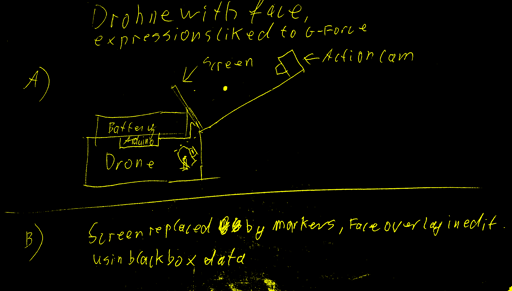 Drohne with face,
expressions liked to G-Force
Screen
Action cam
A)
Battery
Arduino
Drone
B)
Screen replaced by markers, Face overlay in edit.
usin black box data